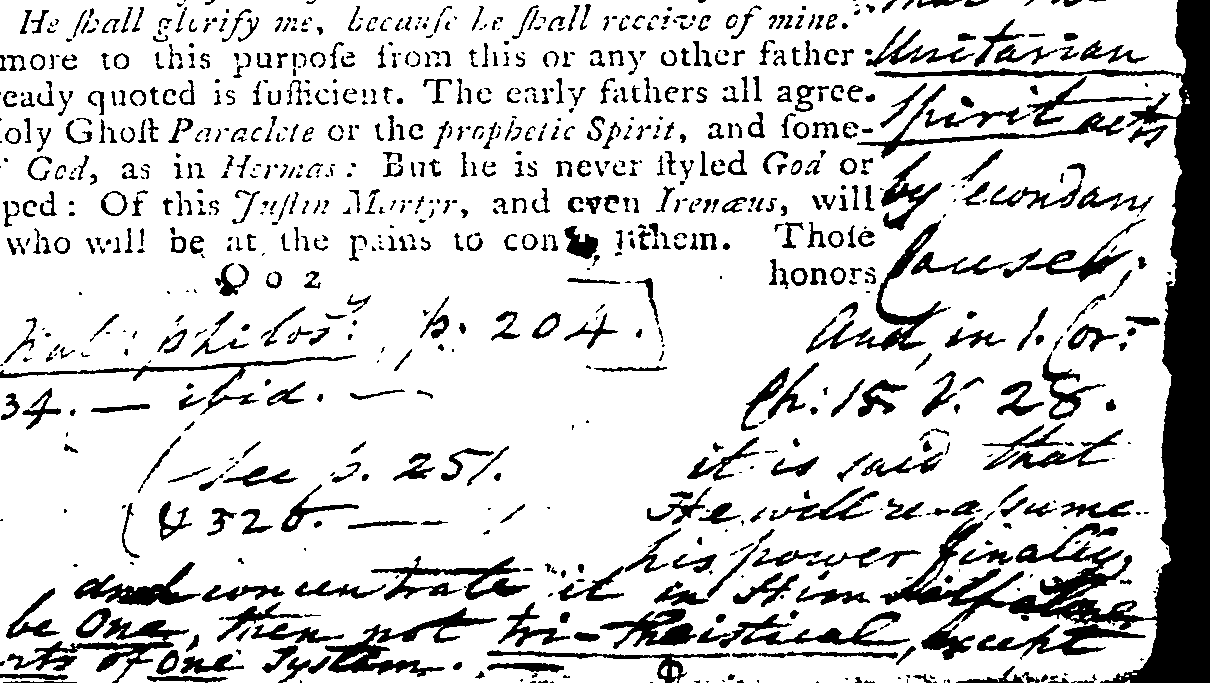 He ſhall glorify me, becauſe he ſhall receive of mine.
more to this purpoſe from this or any other father:
ready quoted is ſufficient. The early fathers all agree.
oly Ghoſt Paraclete or the prophetic Spirit, and ſome-
God, as in Hermas: But he is never ſtyled God or
ped: Of this Juſtin Martyr, and even Irenæus, will
who will be at the pains to con them. Thoſe
O o 2
honors
Unitarian
Spirit acts
by Secondary
Causes;
And, in 1. Cor:
Ch: 15. V. 28.
it is said that
He will re-assume
his power finally,
and concentrate it in Himself alone
be One, then not tri-theistical, except
of One System.
philosy: p. 204.
34. — ibid. —
(See p. 251.
(& 326. —